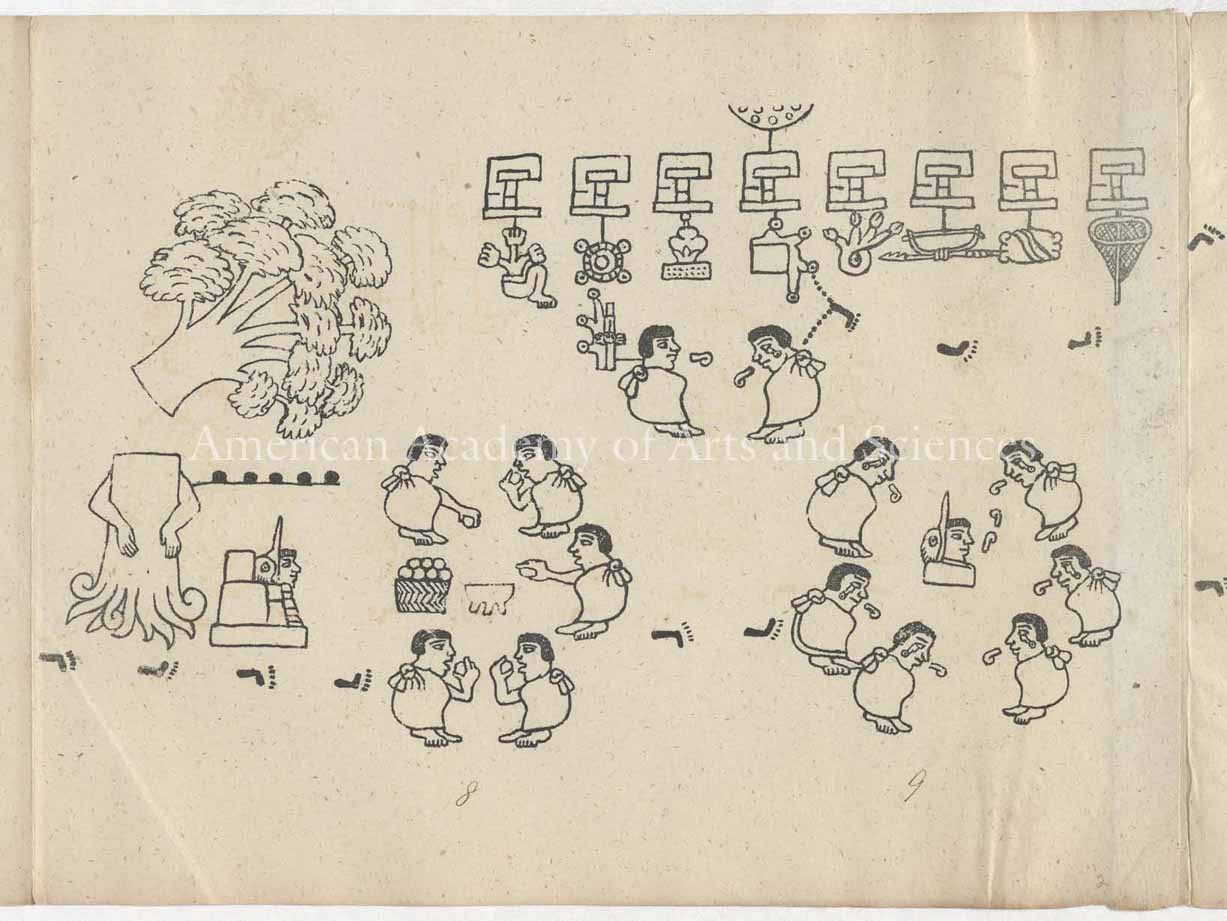 American Academy of Arts and Sciences
8
9
2